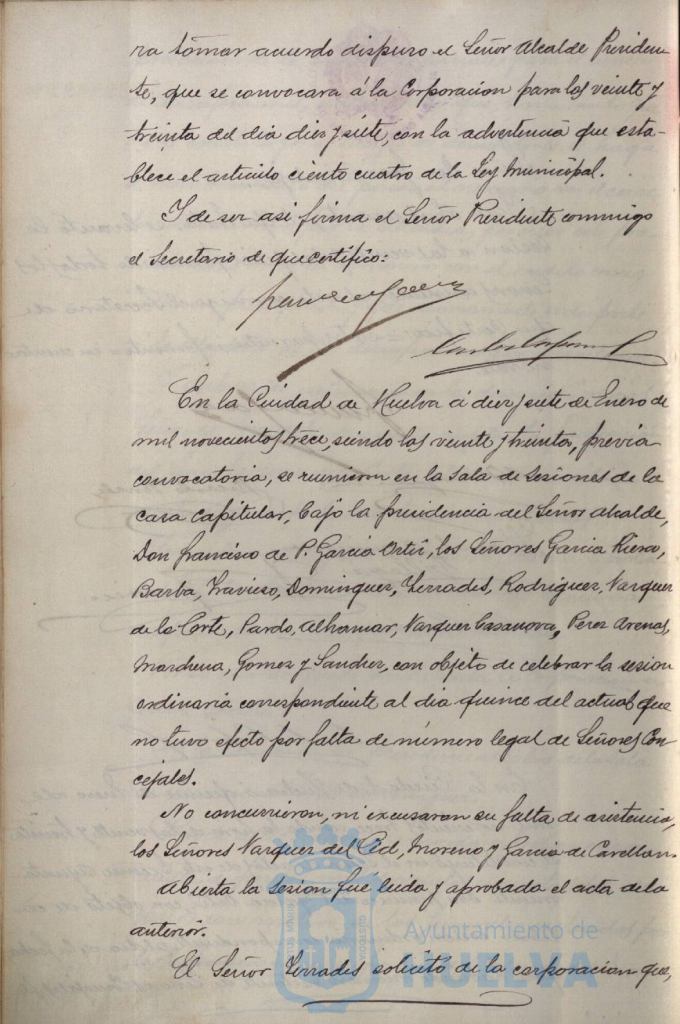 ra tomar acuerdo dispuso el Señor Alcalde Presiden-
te, que se convocara á la Corporacion para las veinte y
treinta del dia diez y siete, con la advertencia que esta-
blece el articulo ciento cuatro de la Ley Municipal.
Y de ser asi firma el Señor Presidente conmigo
el Secretario de que certifico:
En la Ciudad de Huelva á diez y siete de Enero de
mil novecientos trece, siendo las veinte y treinta, previa
convocatoria, se reunieron en la Sala de Sesiones de la
casa Capitular, bajo la presidencia del Señor Alcalde,
Don Francisco de P. García Ortiz, los Señores Garcia Riera,
Barba, Travieso, Dominguez, Terrades, Rodriguez, Vazquez
de la Corte, Pardo, Alhamar, Vazquez Casanova, Perez Arenas,
Marchena, Gomez y Sanchez, con objeto de celebrar la sesion
ordinaria correspondiente al dia quince del actual que
no tuvo efecto por falta de número legal de Señores Con
cejales.
No concurrieron, ni excusaron su falta de asistencia,
los Señores Vazquez del Cid, Moreno y Garcia de
Abierta la sesion fue leida y aprobada el acta de la
anterior.
El Señor Terrades solicitó de la corporacion que,
Ayuntamiento de
HUELVA